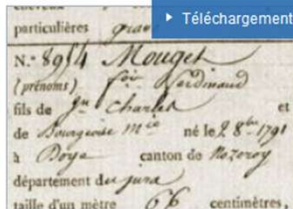 Téléchargement
particulières grav
N.° 8954 Mouget
(prénoms) fois Ferdinand
fils de Jn Charles et
de Bourgeoise Mie né le 8 8bre 1791
à Doye canton de Nozeroy
département du jura
taille d'un mètre 66 centimètres,